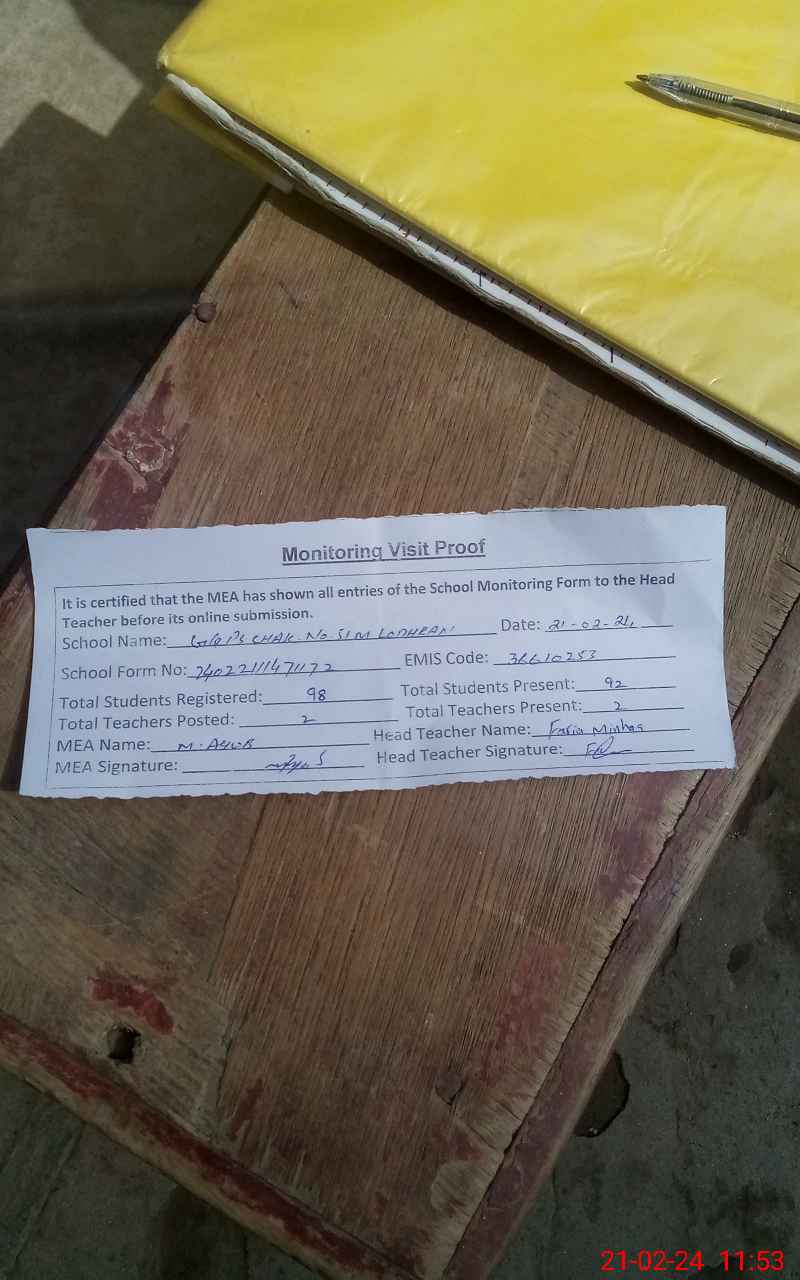 Monitoring Visit Proof
It is certified that the MEA has shown all entries of the School Monitoring Form to the Head
Teacher before its online submission.
School Name: CHAK. No. 51 M LODHRAN Date: 21-02-24
School Form No: 74022111471172 EMIS Code: 36610253
Total Students Registered: 98 Total Students Present: 92
Total Teachers Posted: 2 Total Teachers Present: 2
MEA Name: M. AYUB Head Teacher Name: Fazia Minhas
MEA Signature: Head Teacher Signature:
21-02-24 11:53